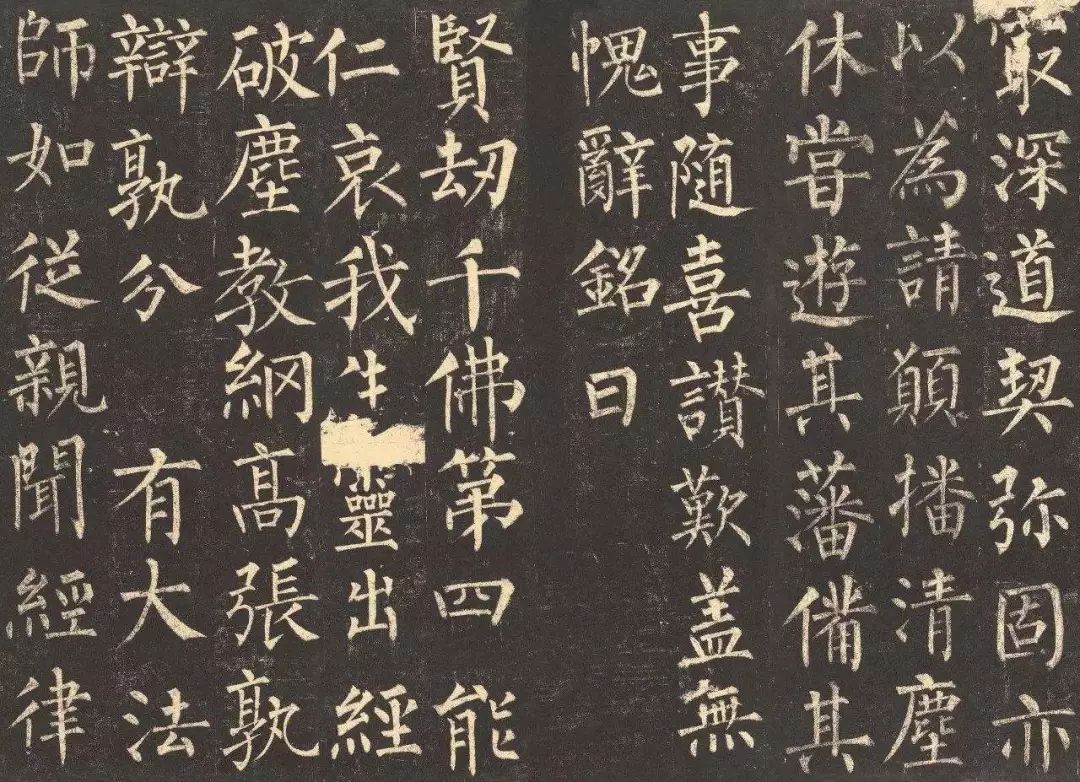 冣深道契弥固亦
以為請願播清塵
休甞遊其藩備其
事隨喜讃歎盖無
愧辭銘曰
賢劫千佛第四能
仁哀我生靈出經
破塵教綱高張孰
辯孰分 有大法
師如從親聞經律